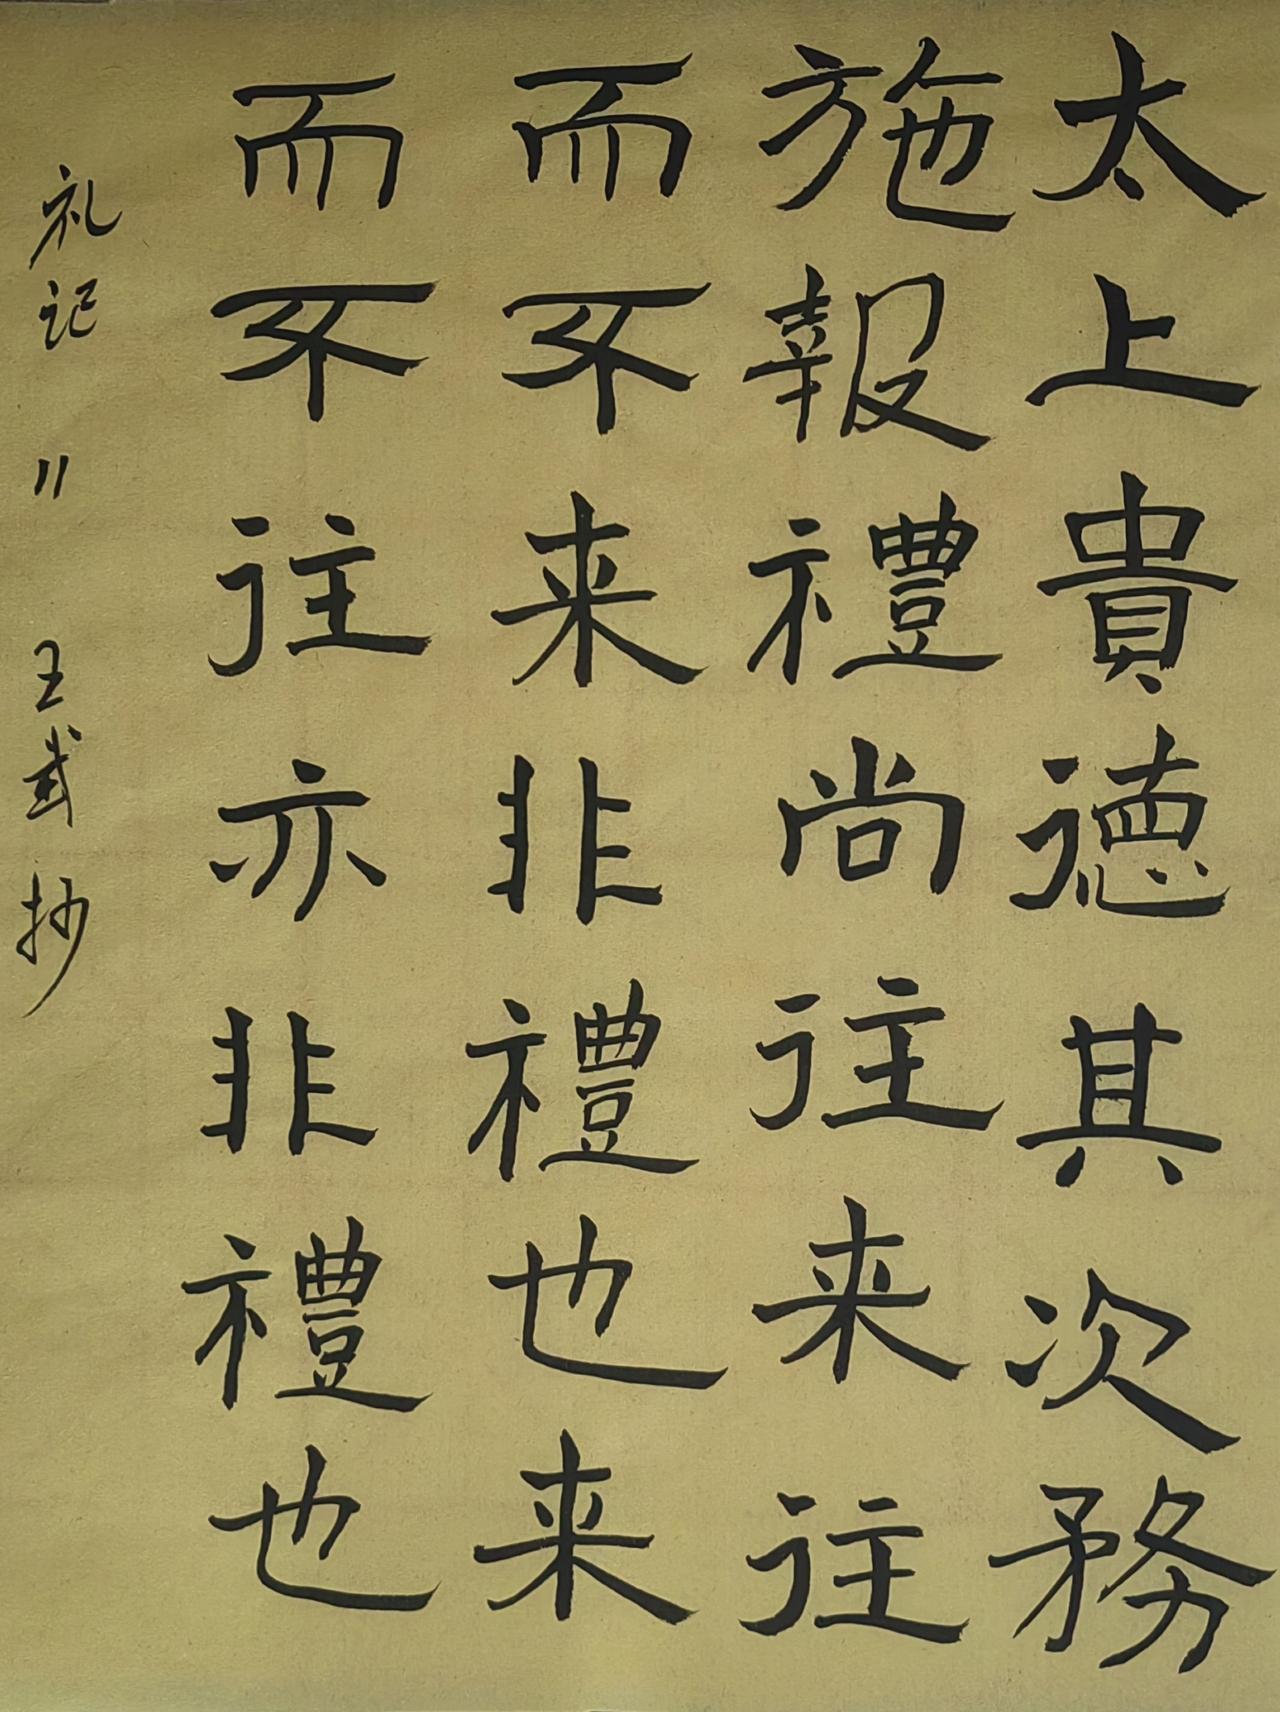 太上貴德其次務
施報禮尚往来往
而不来非禮也来
而不往亦非禮也
礼记〃王武抄